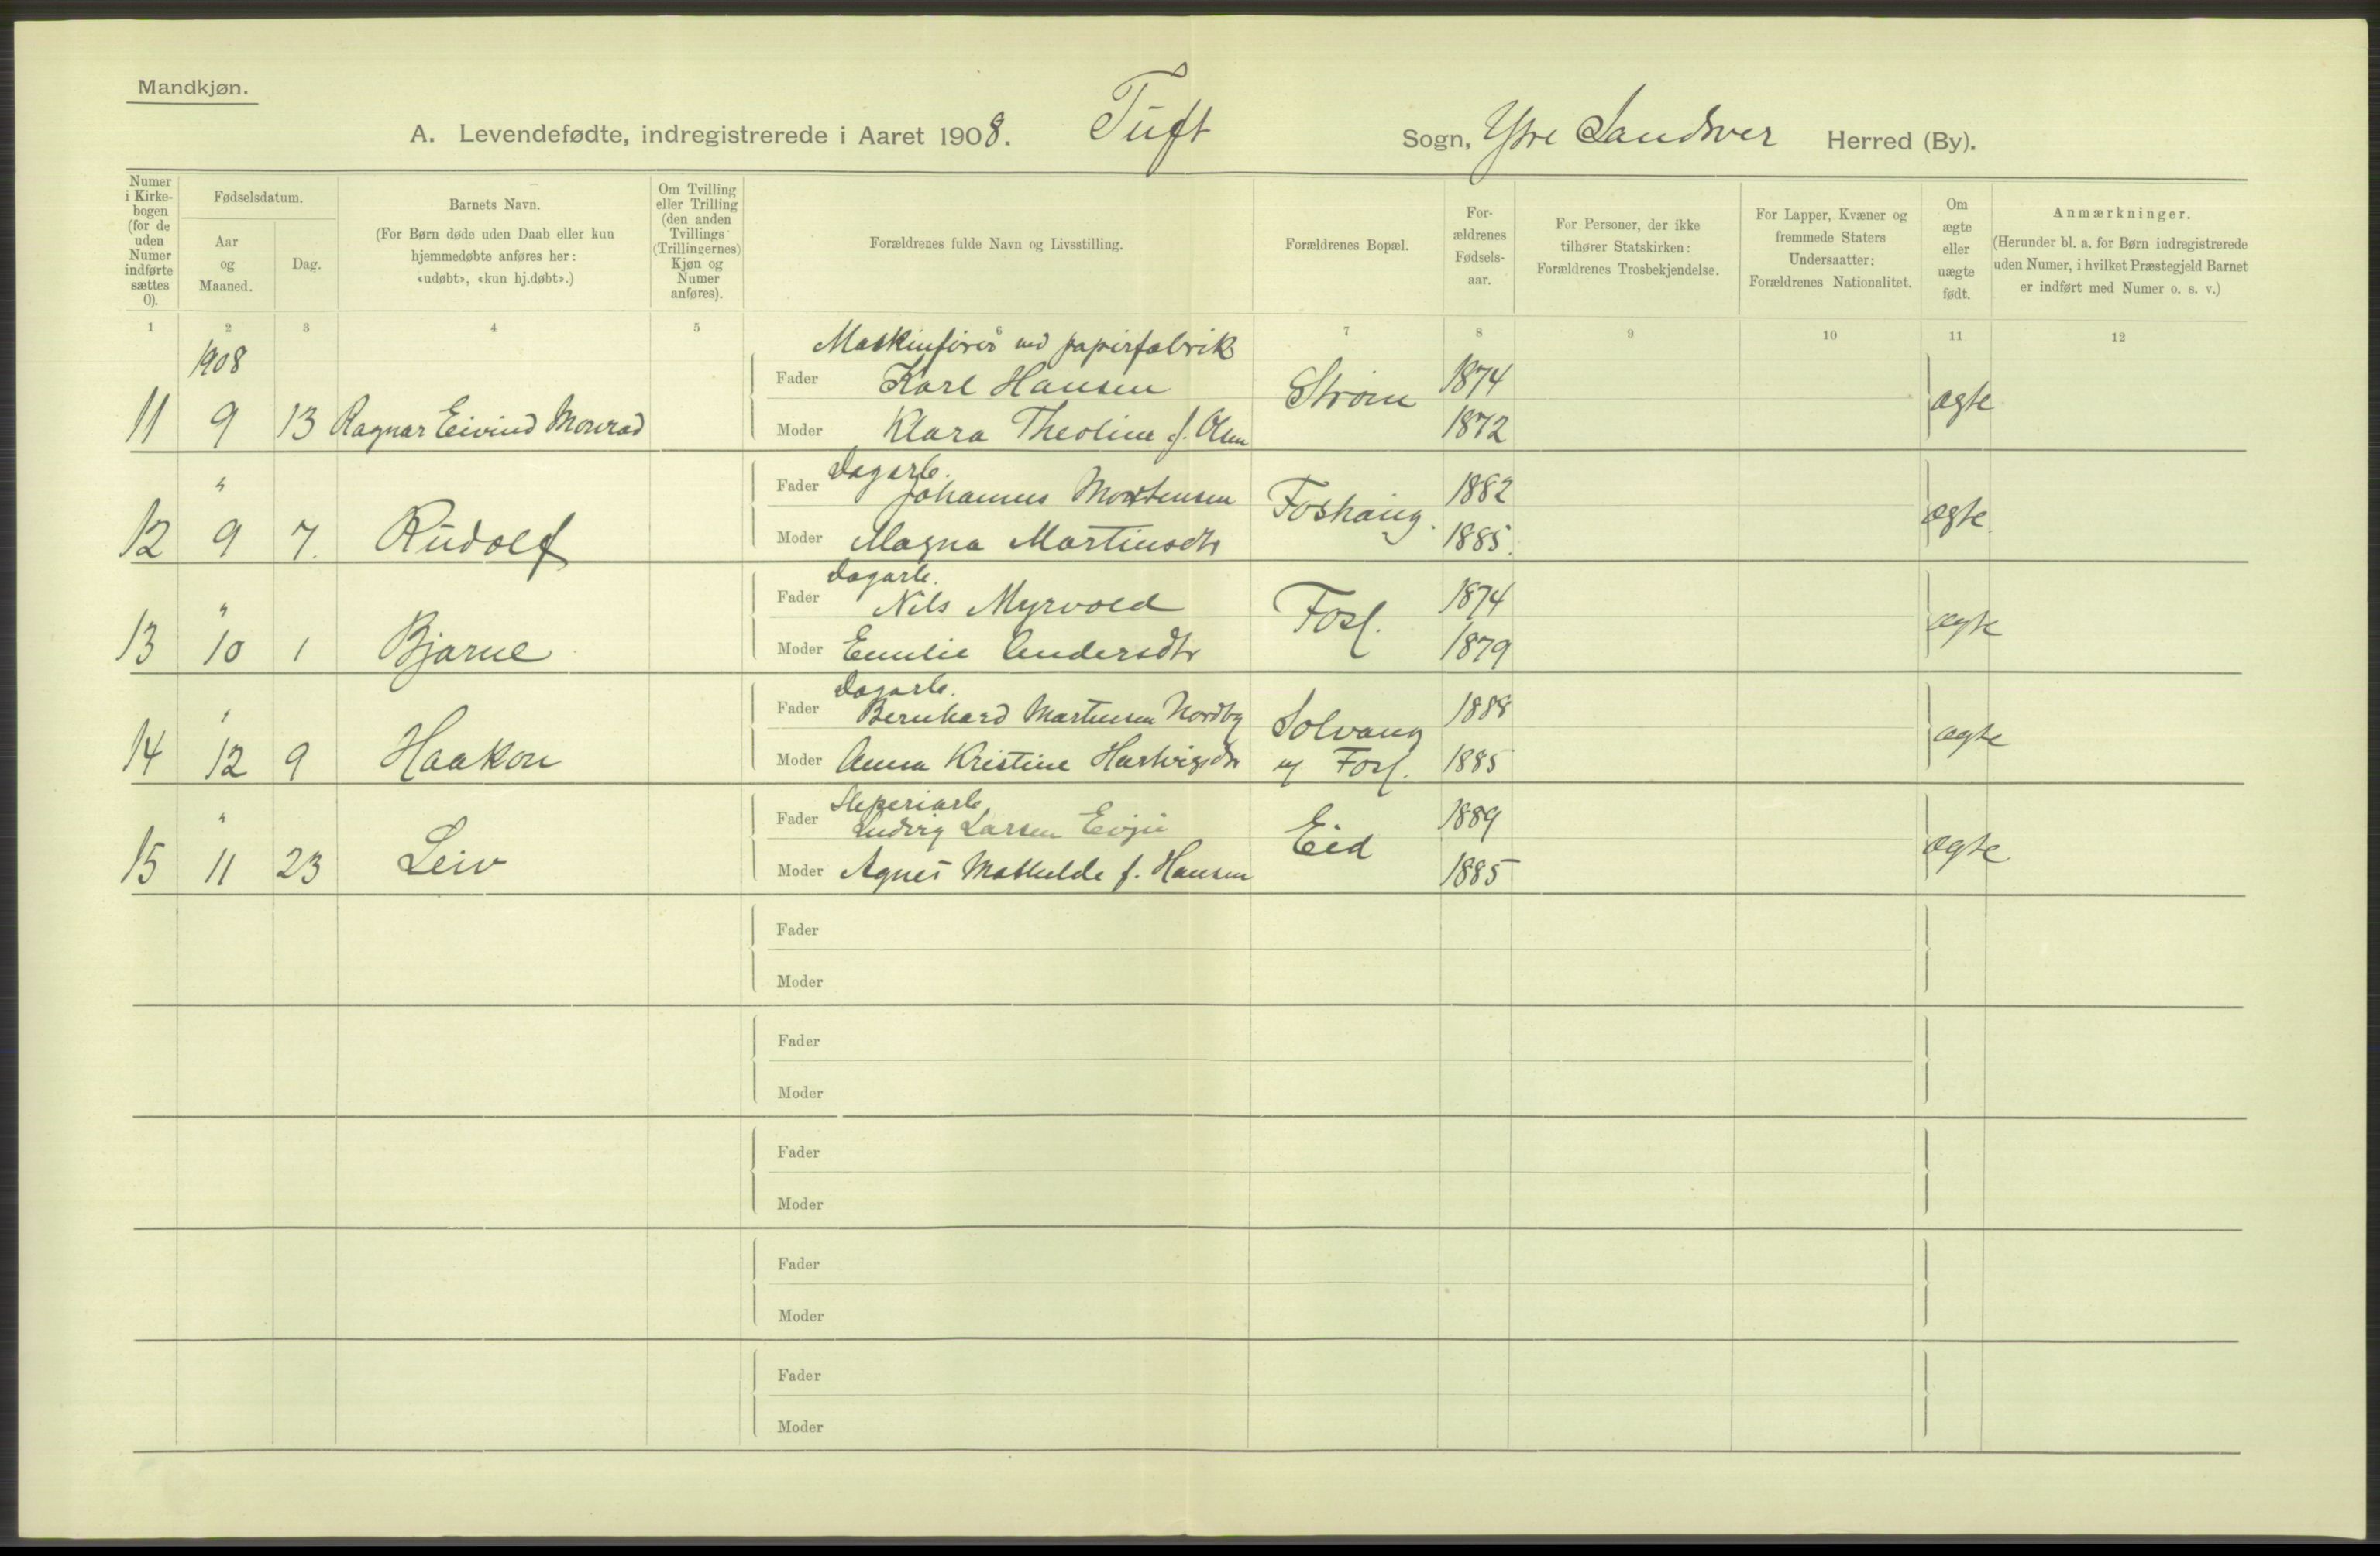 Mandkjøn.
A. Levendefødte, indregistrerede i Aaret 1908. Tuft Sogn, Ytre Sandsver Herred (By).
Numer i Kirkebogen (for de uden Numer indførte sættes 0).
Fødselsdatum.
Aar og Maaned.
Dag.
Barnets Navn.
(For Børn døde uden Daab eller kun hjemmedøbte anføres her: «udøbt», «kun hj.døbt».)
Om Tvilling eller Trilling (den anden Tvillings (Trillingernes) Kjøn og Numer anføres).
Forældrenes fulde Navn og Livsstilling.
Forældrenes Bopæl.
Forældrenes Fødselsaar.
For Personer, der ikke tilhører Statskirken: Forældrenes Trosbekjendelse.
For Lapper, Kvæner og fremmede Staters Undersaatter: Forældrenes Nationalitet.
Om ægte eller uægte født.
Anmærkninger.
(Herunder bl. a. for Børn indregistrerede uden Numer, i hvilket Præstegjeld Barnet er indført med Numer o. s. v.)
1 2 3 4 5 6 7 8 9 10 11 12
1908 Maskinfører ved papirfabrik
Fader Karl Hansen Strøm 1874 ægte
11 9 13 Ragnar Eivind Monrad Moder Klara Theoline f. Olsen 1872
" Dagarb.
Fader Johannes Mortensen Foshaug. 1882 ægte
12 9 7. Rudolf Moder Magna Martinsdtr 1885.
" Dagarb.
Fader Nils Myrvold Fosf. 1874 ægte
13 10 1 Bjarne Moder Emilie Andersdtr 1879
" Dagarb.
Fader Bernhard Martinsen Nordby Solvang 1888 ægte
14 12 9 Haakon Moder Anna Kristine Hartvigsdtr Fosf. 1885
" Sliperiarb.
Fader Ludvig Larsen Evju Eid 1889 ægte
15 11 23 Leiv Moder Agnes Mathilde f. Hansen 1885
Fader
Moder
Fader
Moder
Fader
Moder
Fader
Moder
Fader
Moder